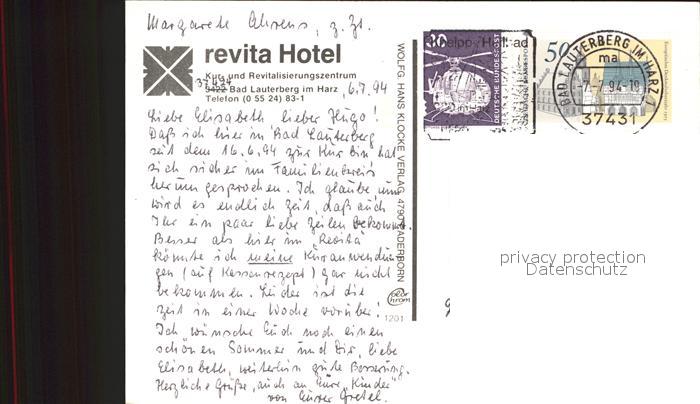 Margarete Ahrens, z.Zt.
revita Hotel
Kur- und Revitalisierungszentrum
37431
3422 Bad Lauterberg im Harz
Telefon (0 55 24) 83-1
6.7.94
Liebe Elisabeth, lieber Hugo!
Daß ich hier in Bad Lauterberg
seit dem 16.6.94 zur Kur bin hat
sich sicher im Familienkreis
herumgesprochen. Ich glaube nun
wird es endlich Zeit, daß auch
Ihr ein paar liebe Zeilen bekommt.
Besser als hier im "Revita"
könnte ich meine Kuranwendun-
gen (auf Kassenrezept) gar nicht
bekommen. Leider ist die
Zeit in einer Woche vorüber!
Ich wünsche Euch noch einen
schönen Sommer und Dir, liebe
Elisabeth, weiterhin gute Besserung.
Herzliche Grüße, auch an Eure "Kinder"
von Eurer Gretel.
WOLFG. HANS KLOCKE VERLAG, 4790 PADERBORN
color
chrom
1201
30
DEUTSCHE BUNDESPOST
Kneipp-Heilbad
50
BAD LAUTERBERG IM HARZ 1
ma
-7.-7.94-18
37431
privacy protection
Datenschutz